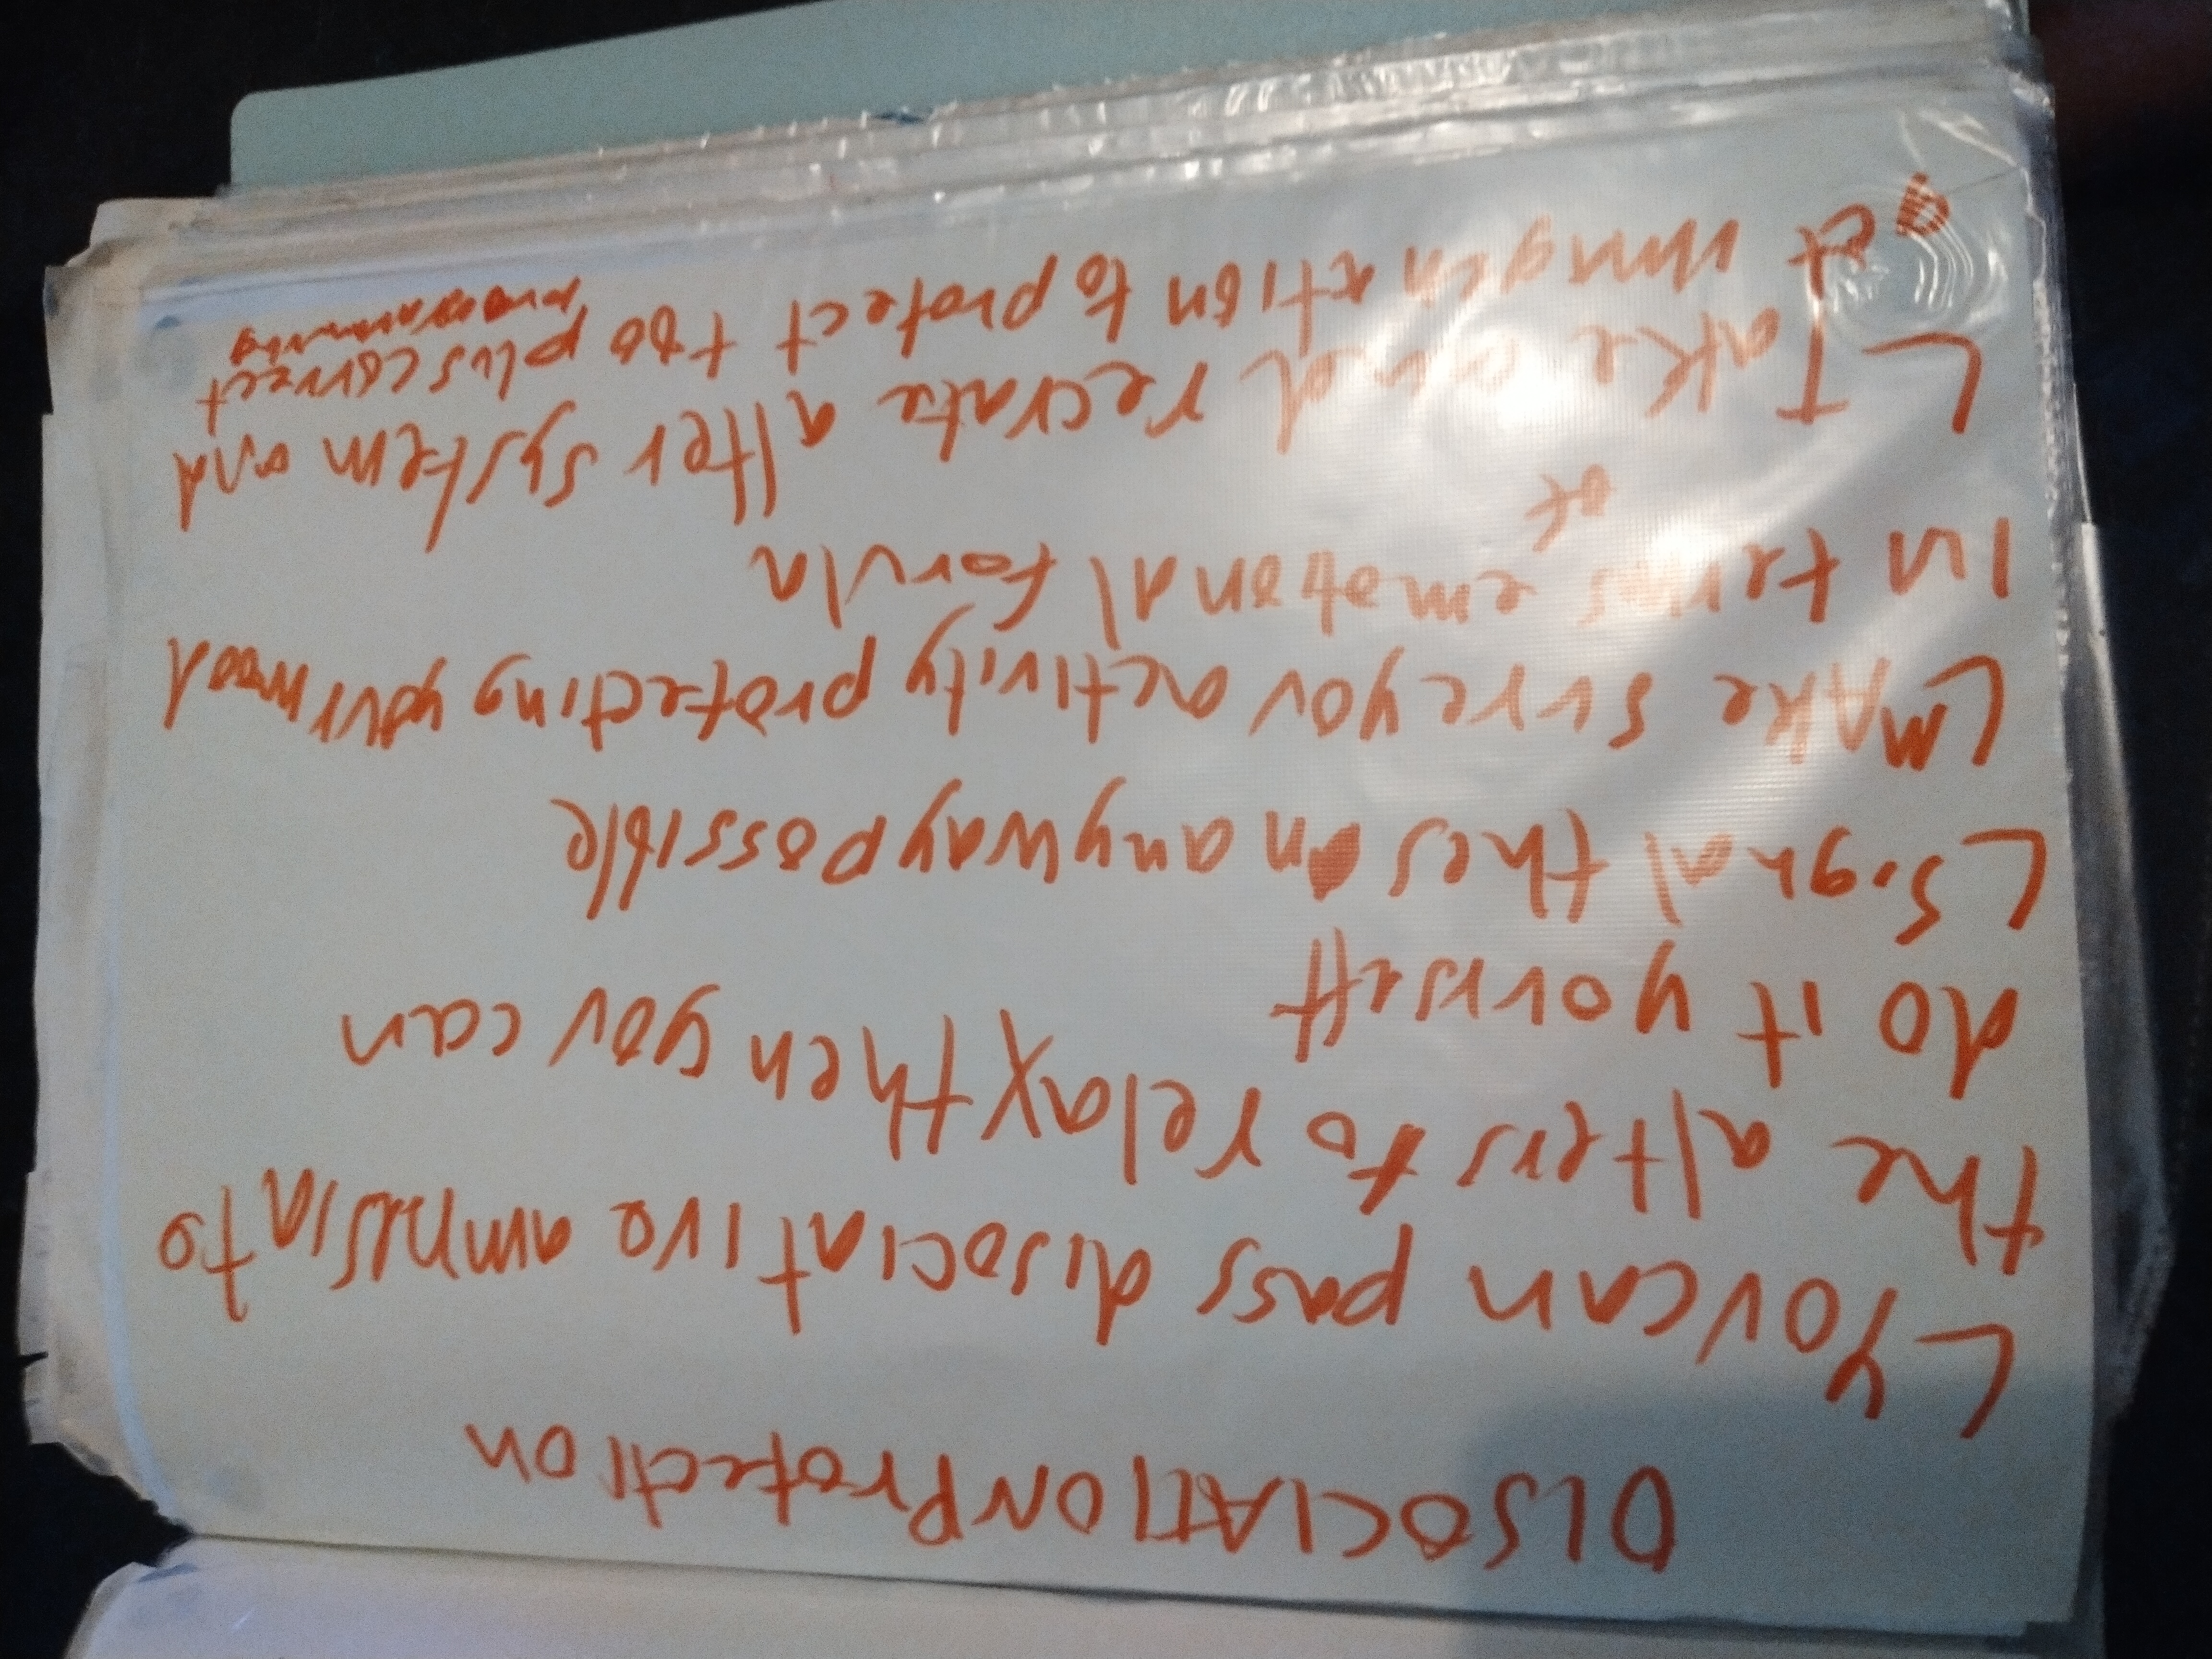 DISOCIATION Protection
L You can pass disociative amnesia to
the alters to relax then you can
do it yourself
L signal thes on anyway possible
L MAke sure you activity protecting your mood
in terms of emotional forula
L Take and recrate alter system and
imagination to protect too plus correct
programming